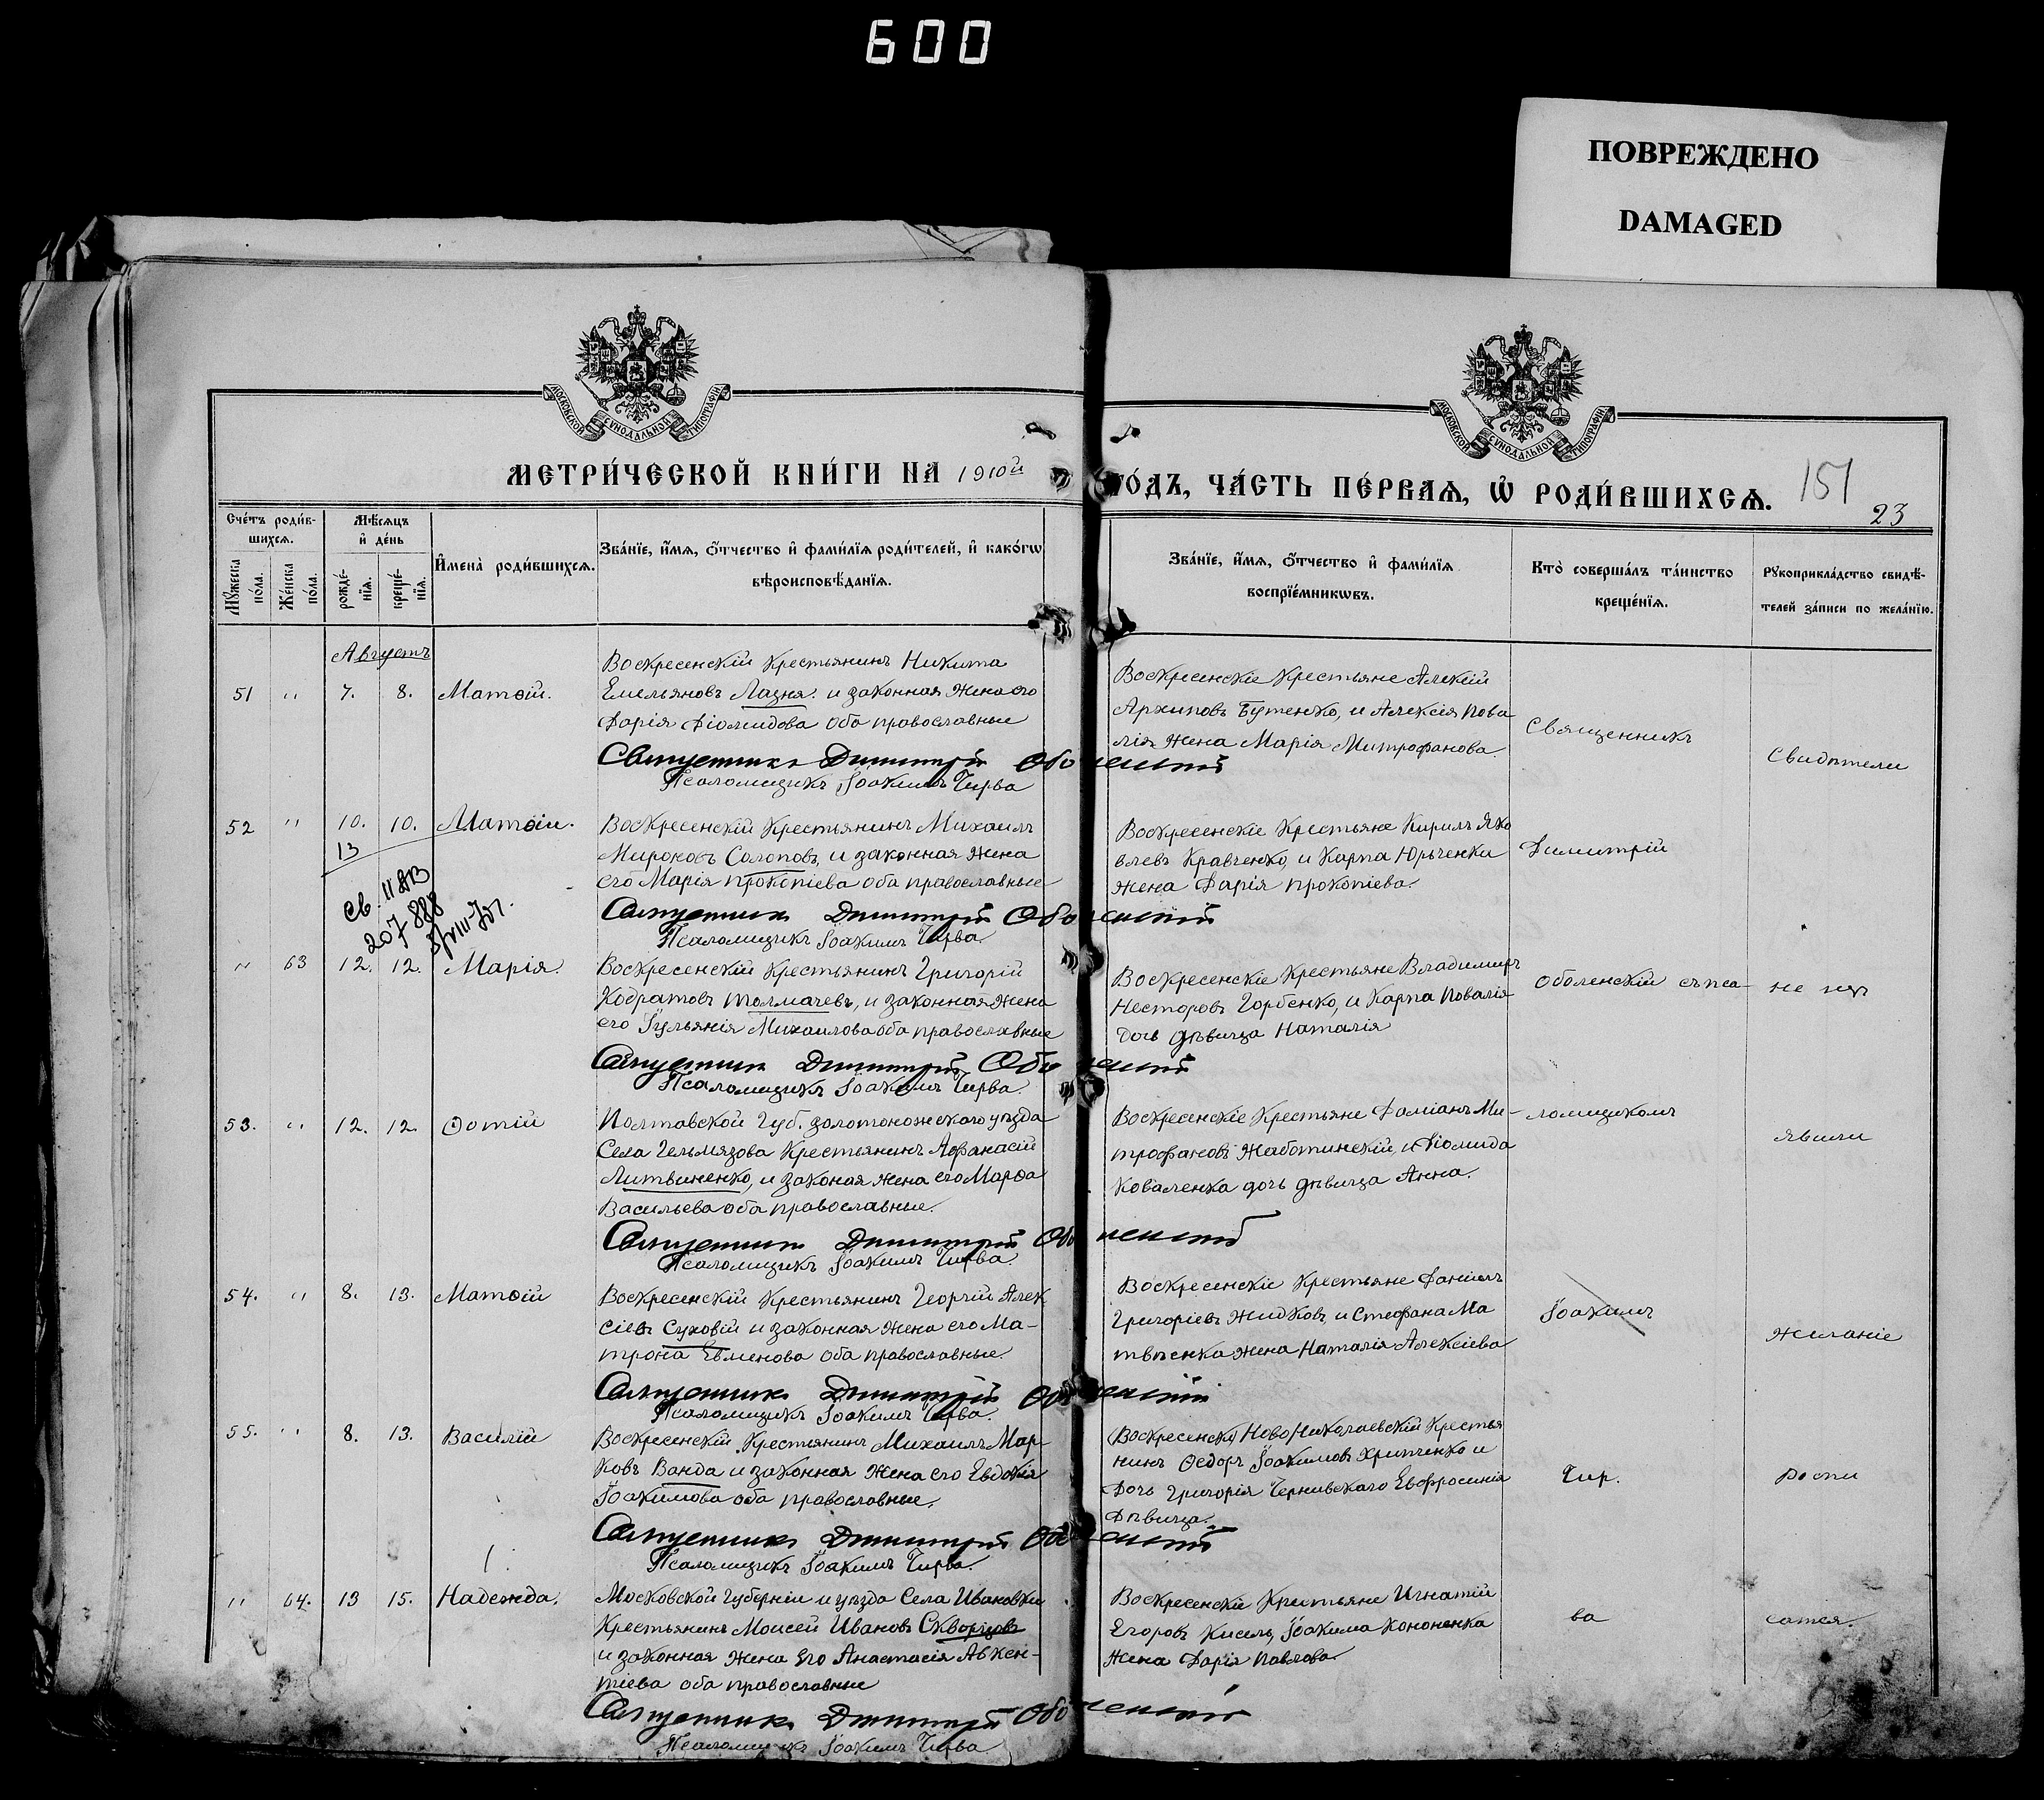 600
ПОВРЕЖДЕНО
DAMAGED
МОСКОВСКОЙ СѴНОДАЛЬНОЙ ТИПОГРАФІИ
МОСКОВСКОЙ СѴНОДАЛЬНОЙ ТИПОГРАФІИ
МЕТРИ́ЧЕСКОЙ КНИ́ГИ НА 1910й
ГО́ДЪ, ЧА́СТЬ ПЕ́РВАѦ, Ѡ҆ РОДИ́ВШИХСѦ.
151
23
Сче́тъ роди́в-
шихсѧ.
Мѣ́сѧцъ
и҆ де́нь
Мꙋ́жеска
по́ла.
Же́нска
по́ла.
рожде́-
нїѧ.
креще́-
нїѧ.
И҆мена̀ роди́вшихсѧ.
Зва́нїе, и҆́мѧ, ѻ҆́тчество и҆ фами́лїѧ роди́телей, и҆ како́гѡ
вѣроисповѣ́данїѧ.
Зва́нїе, и҆́мѧ, ѻ҆́тчество и҆ фами́лїѧ
воспрїе́мникѡвъ.
Кто̀ соверша́лъ та́инство
креще́нїѧ.
Рꙋкоприкла́дство свидѣ́-
телей за́писи по жела́нїю.
Августъ
51 " 7. 8. Матѳій.
Воскресенскій Крестьянинъ Никита
Емельяновъ Лазня. и законная жена его
Дарія Діомидова оба православные
Священникъ Димитрій Оболенскій
Псаломщикъ Іоакимъ Чирва
Воскресенскіе Крестьяне Алексій
Архиповъ Бутенко, и Алексія Пова
лія жена Марія Митрофанова
Священникъ
Свидѣтели
52 " 10. 10. Матѳій.
13
Св. II АВ
207888
Воскресенскій Крестьянинъ Михаилъ
Мироновъ Солоповъ, и законная жена
его Марія Прокопіева оба православные
Священникъ Димитрій Оболенскій
Псаломщикъ Іоакимъ Чирва.
Воскресенскіе Крестьяне Кирилъ Яко
влевъ Кравченко, и Карпа Юрьченки
жена Дарія Прокопіева.
Димитрій
" 63 12. 12. Марія.
Воскресенскій Крестьянинъ Григорій
Кодратовъ Толмачевъ, и законная жена
его Іульянія Михаилова оба православные
Священникъ Димитрій Оболенскій
Псаломщикъ Іоакимъ Чирва.
Воскресенскіе Крестьяне Владимиръ
Несторовъ Горбенко, и Карпа Повалія
дочь дѣвица Наталія
Оболенскій съ пса-
не изъ
53. " 12. 12. Ѳотій
Полтавской Губ. Золотоношскаго уѣзда
Села Гельмязова Крестьянинъ Аѳанасій
Литвиненко, и законая жена его Марѳа
Васильева оба православные.
Священникъ Димитрій Оболенскій
Псаломщикъ Іоакимъ Чирва.
Воскресенскіе Крестьяне Даміанъ Ми-
трофановъ Жаботинскій, и Діомида
Коваленка дочь дѣвица Анна.
ломщикомъ
явили
54. " 8. 13. Матѳій
Воскресенскій Крестьянинъ Георгій Алек
сіевъ Суховій и законная жена его Ма-
трона Евменова оба православные.
Священникъ Димитрій Оболенскій
Псаломщикъ Іоакимъ Чирва.
Воскресенскіе Крестьяне Даніилъ
Григоріевъ Жидковъ, и Стефана Ма
твѣенка жена Наталія Алексіева
Іоакимъ
желаніе
55. " 8. 13. Василій
Воскресенскій Крестьянинъ Михаилъ Мар
ковъ Ванда и законная жена его Евдокія
Іоакимова оба православные.
Священникъ Димитрій Оболенскій
Псаломщикъ Іоакимъ Чирва.
Ново Николаевскій Крестья
нинъ Ѳедоръ Іоакимовъ Хрипченко и
Дочь Григорія Чернявскаго Евфросинія
Дѣвица.
Чир.
роспи
" 64. 13 15. Надежда.
Московской Губерніи и уѣзда Села Ивановки
Крестьянинъ Моисей Ивановъ Скворцовъ
и законная жена его Анастасія Авкен-
тіева оба православные
Священникъ Димитрій Оболенскій
Псаломщикъ Іоакимъ Чирва
Воскресенскіе Крестьяне Игнатій
Егоровъ Кисель, Іоакима Кононенка
жена Дарія Павлова.
ва
сатся.